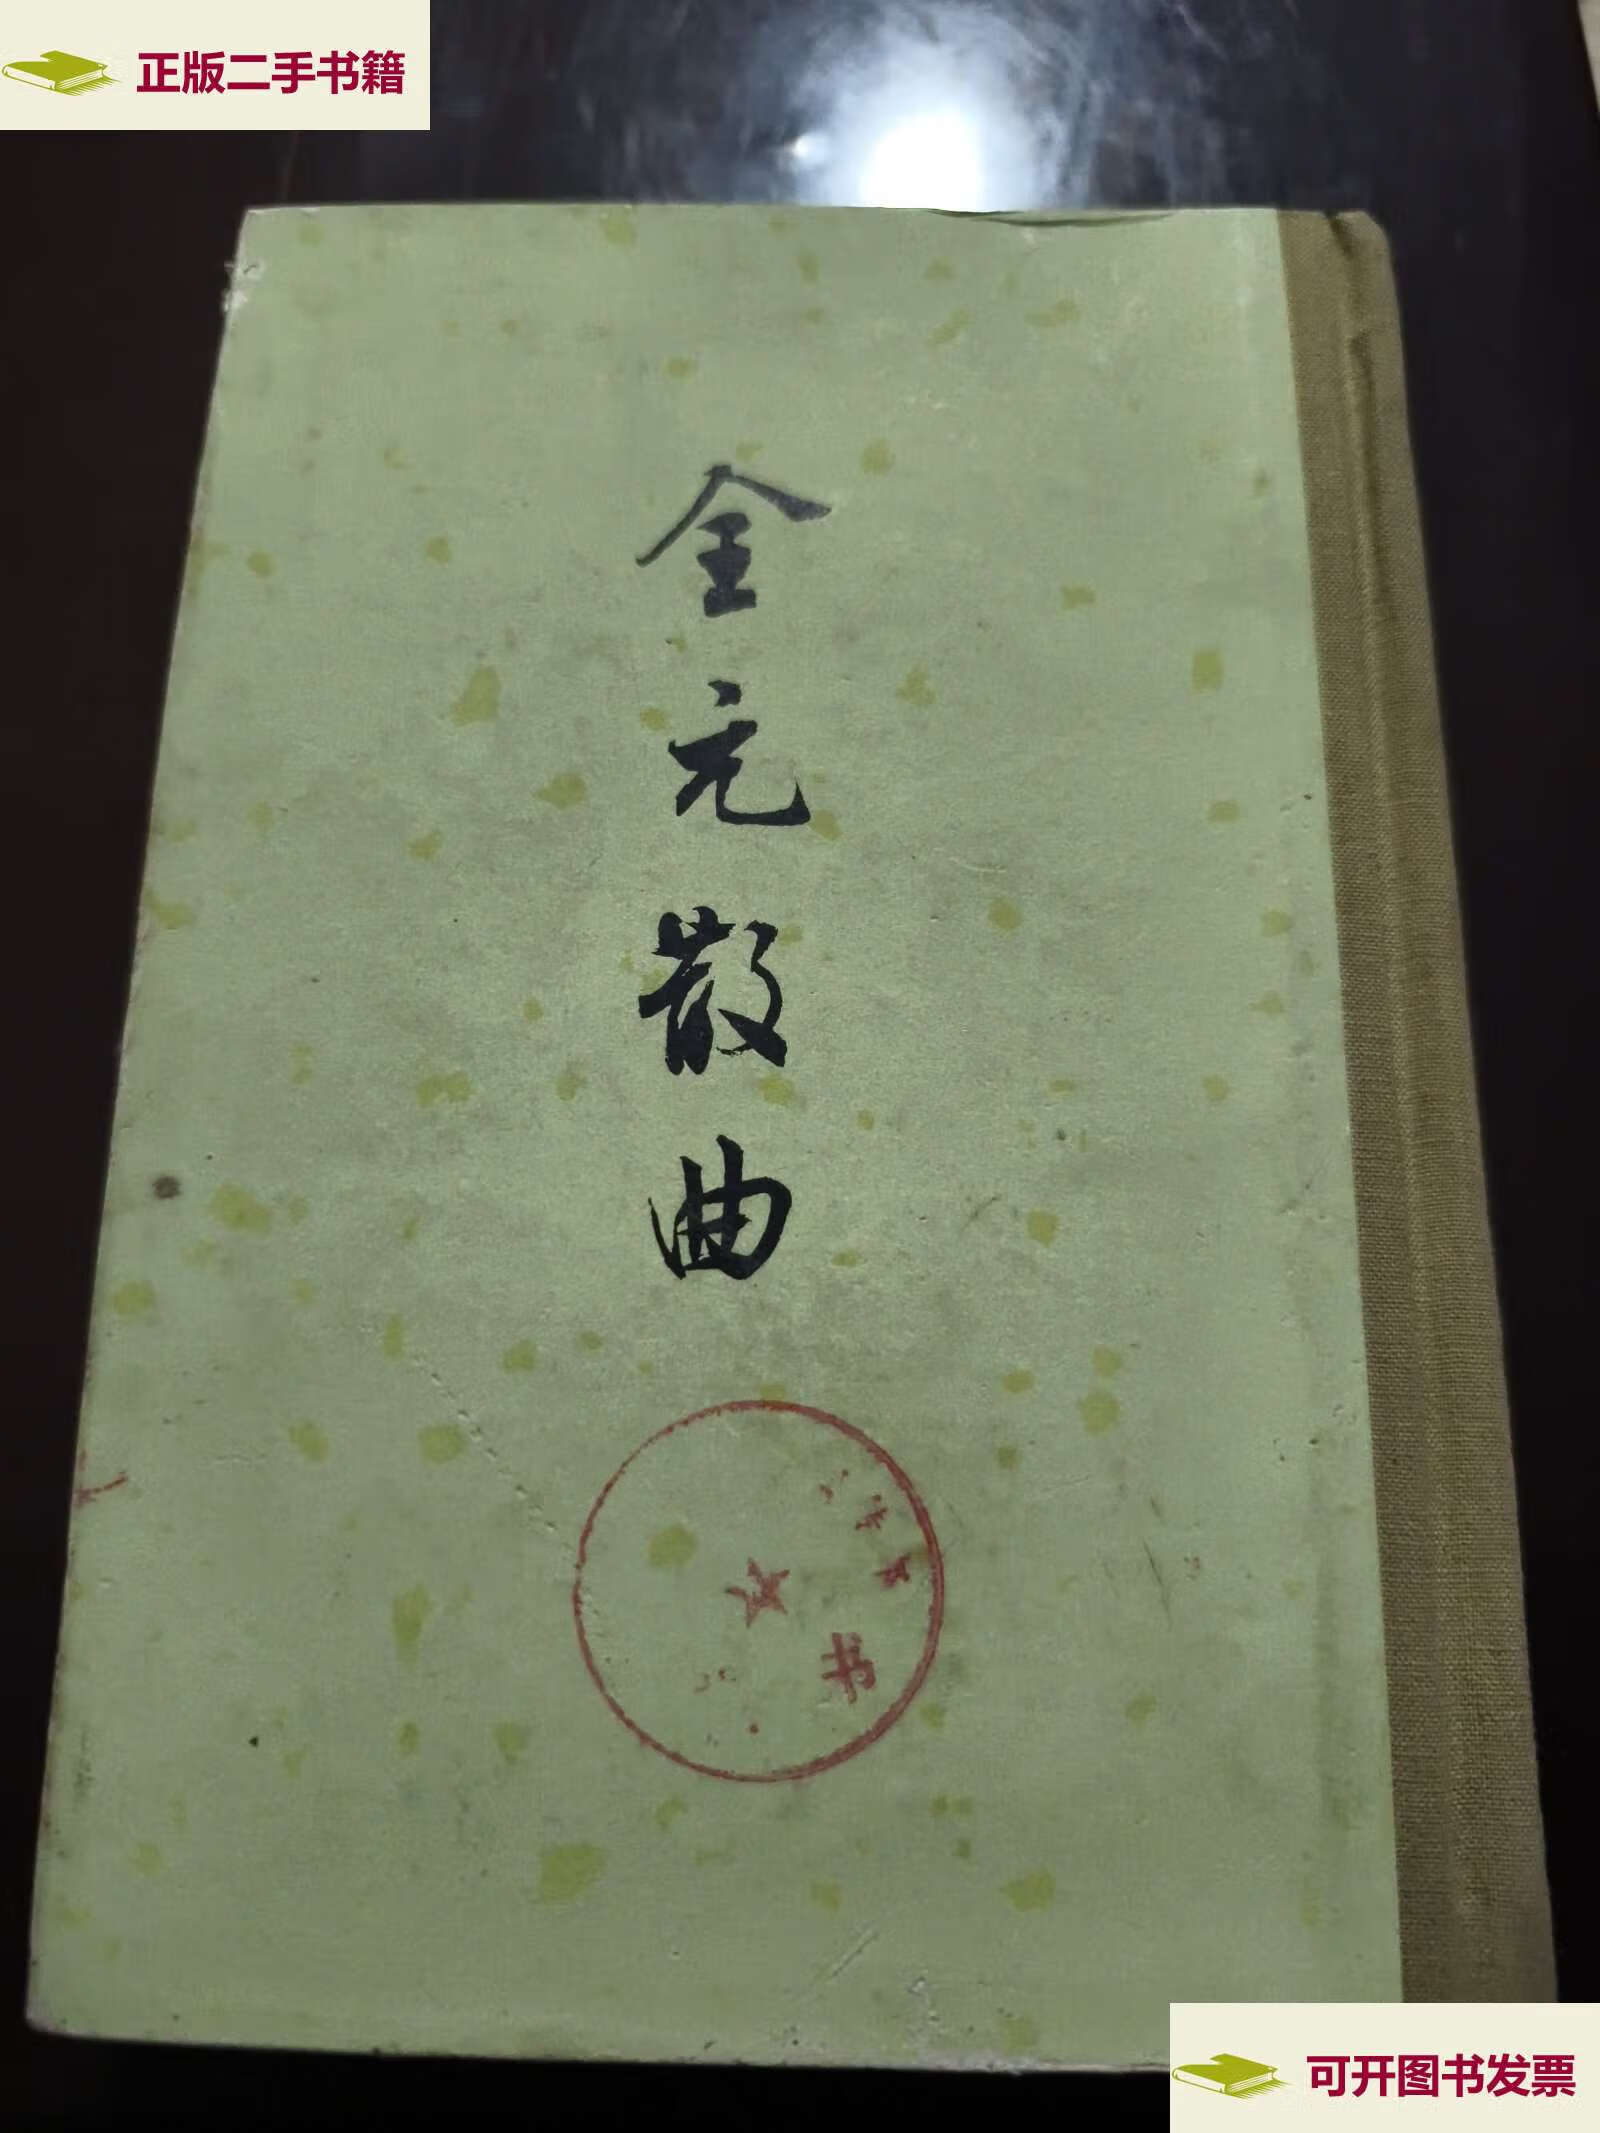 正版二手书籍
全元散曲
书
可开图书发票